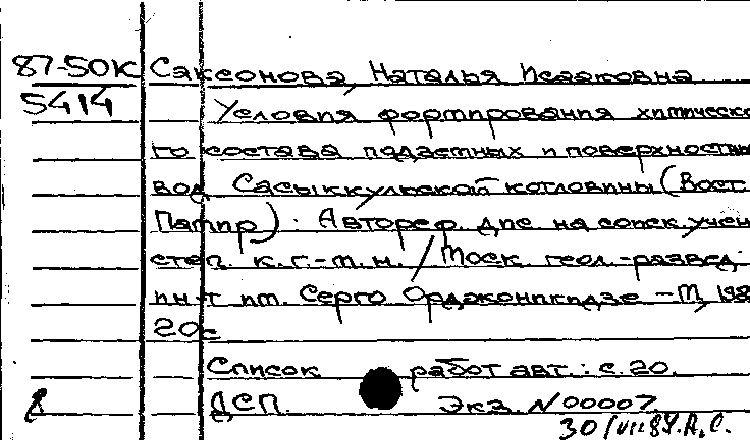 87-50К Саксонова, Наталья Исааковна.
5414 Условия формирования химическо
го состава подземных и поверхностных
вод Сасыккульской котловины (Вост.
Памир) : Автореф. дис. на соиск. учен.
степ. к.г.-м.н. / Моск. геол.-развед.
ин-т им. Серго Орджоникидзе - М, 198
20с
Список работ авт.: с. 20.
ДСП. Экз. N 00007
30/VII